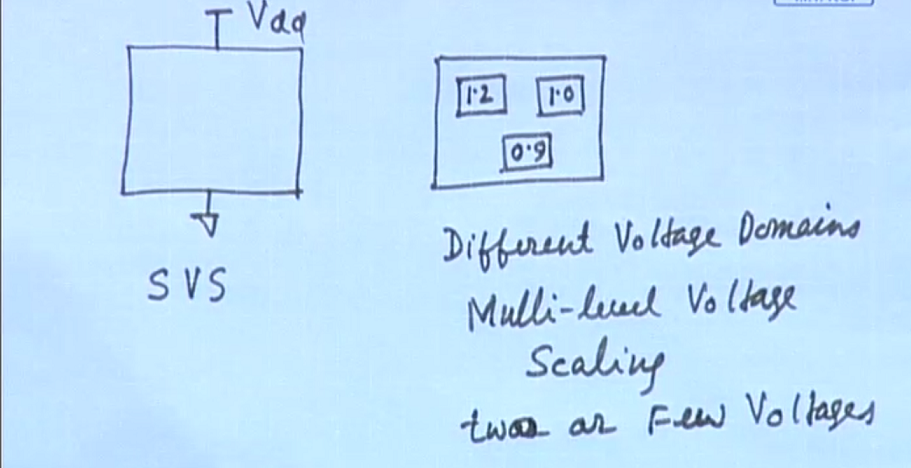 Vdd
SVS
1.2
1.0
0.9
Different Voltage Domains
Multi-level Voltage
Scaling
two or Few Voltages